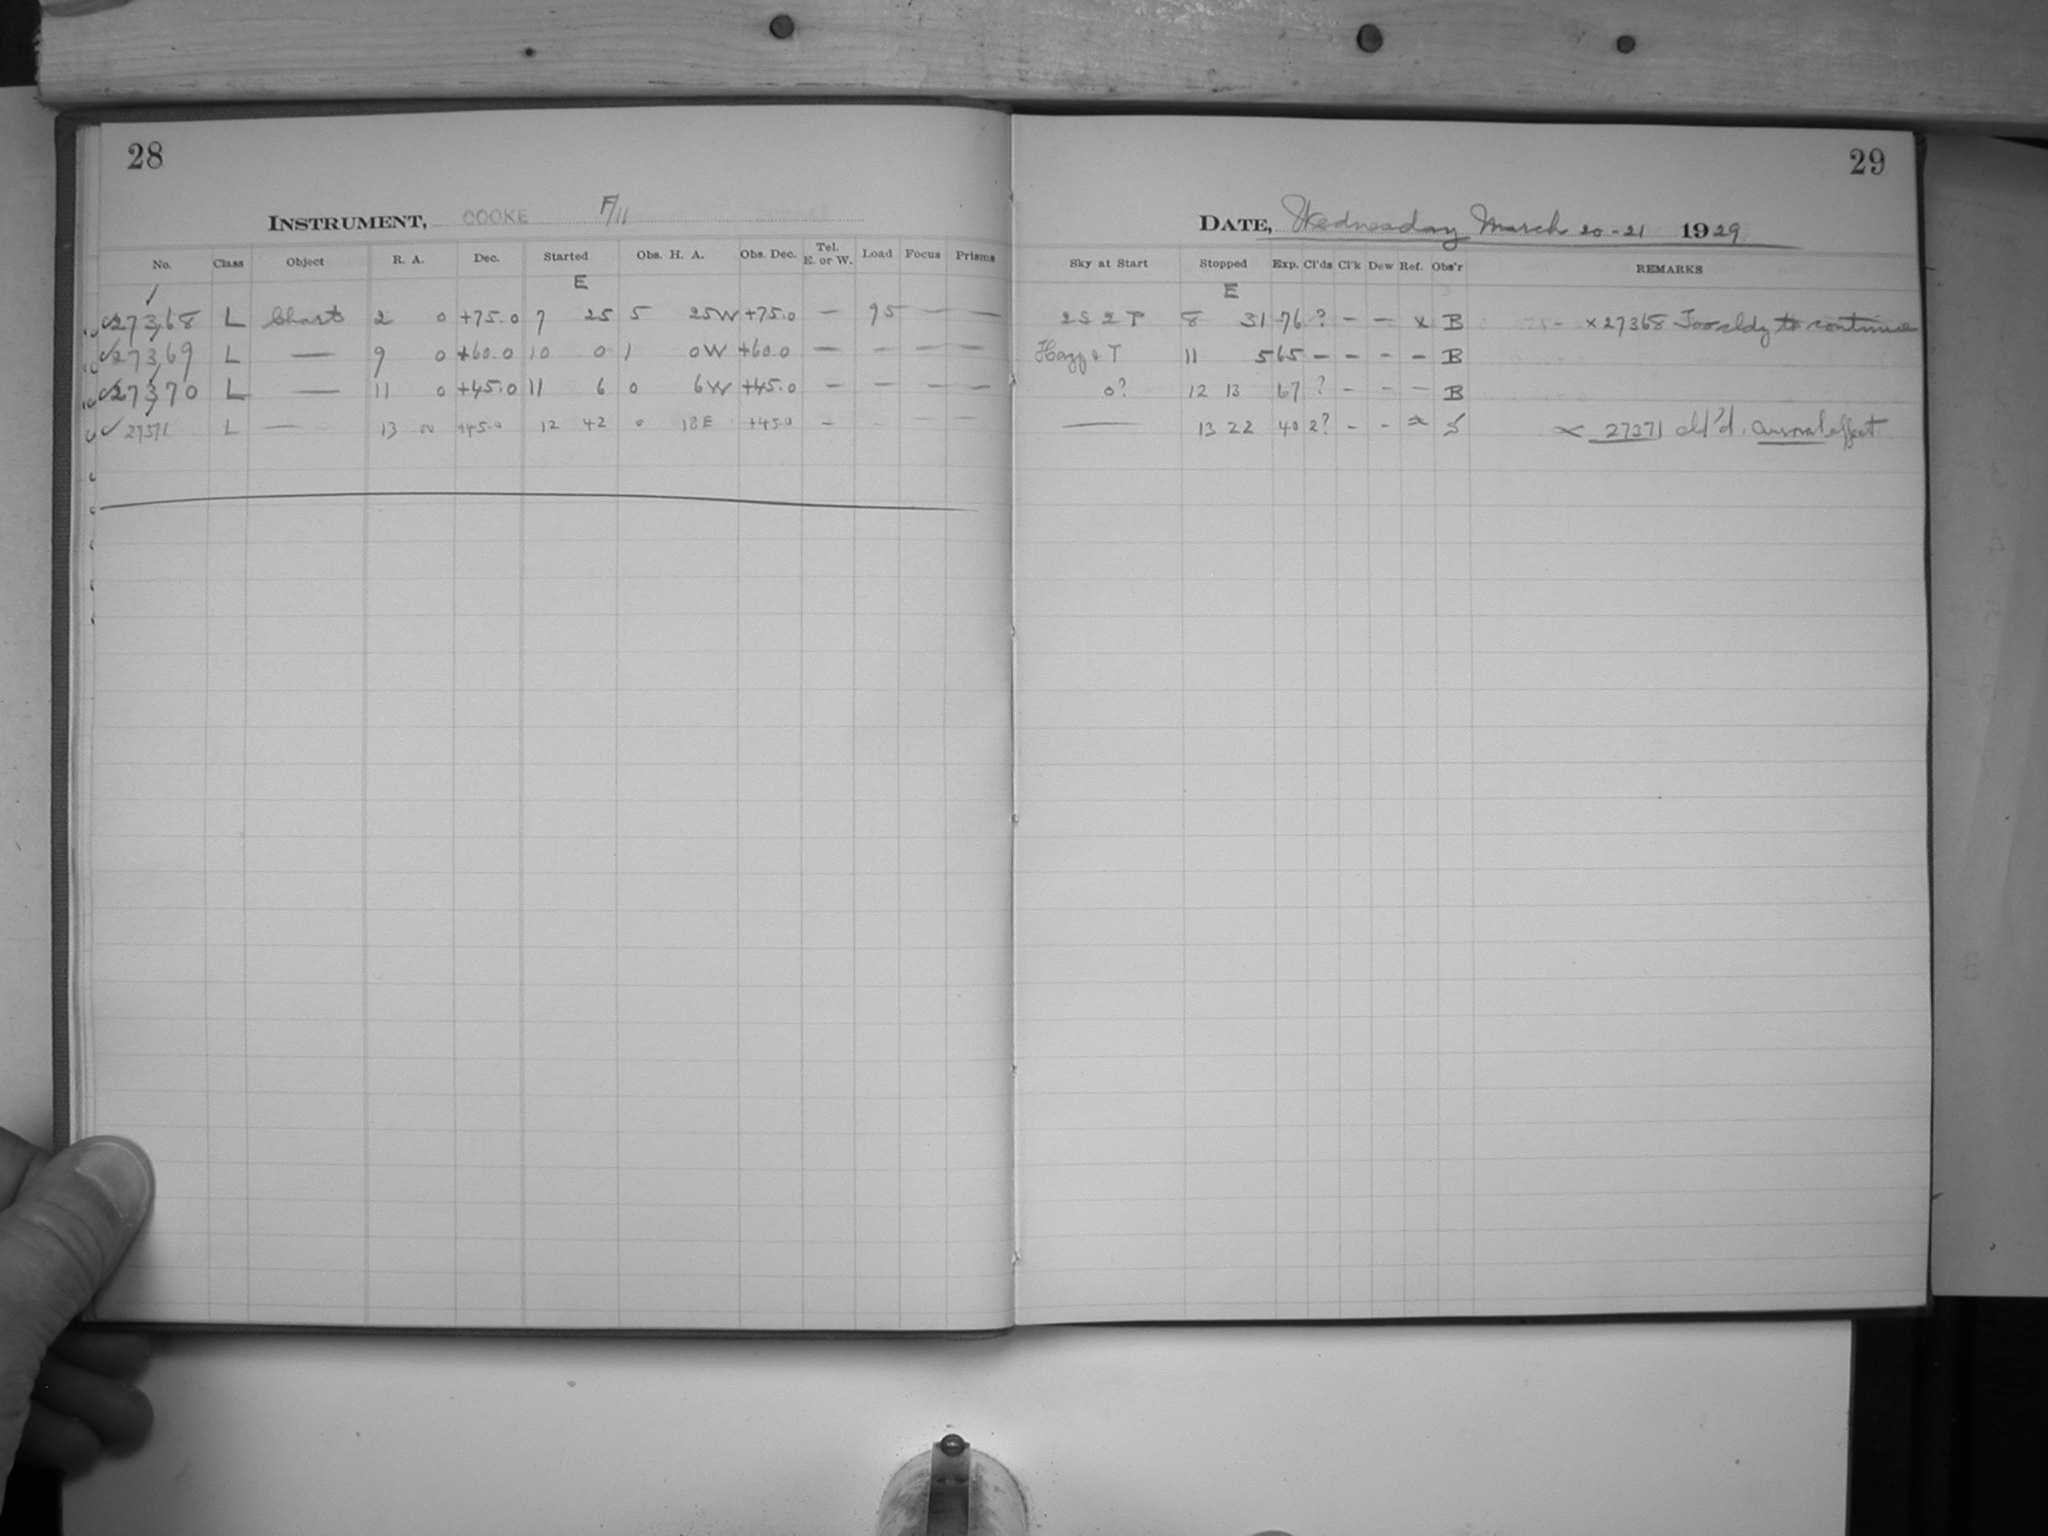 28
INSTRUMENT, COOKE F/11
No. Class Object R. A. Dec. Started Obs. H. A. Obs. Dec. Tel. E. or W. Load Focus Prisms
E
✓27368 L Charts 2 0 +75.0 7 25 5 25W +75.0 — 95 — —
✓27369 L — 9 0 +60.0 10 0 1 0W +60.0 — — — —
✓27370 L — 11 0 +45.0 11 6 0 6W +45.0 — — — —
✓ 27371 L — 13 00 +45.0 12 42 0 18E +45.0 — - — —
29
DATE, Wednesday March 20-21 1929
Sky at Start Stopped Exp. Cl'ds Cl'k Dew Ref. Obs'r REMARKS
E
2 S 2 T 8 31 76 ? — — x B - x 27368 Too cldy to continue
Hazy & T 11 5 65 — — — — B
0? 12 13 67 ? - - — B
— 13 22 40 2? - - x S x 27371 cl'd. auroral effect